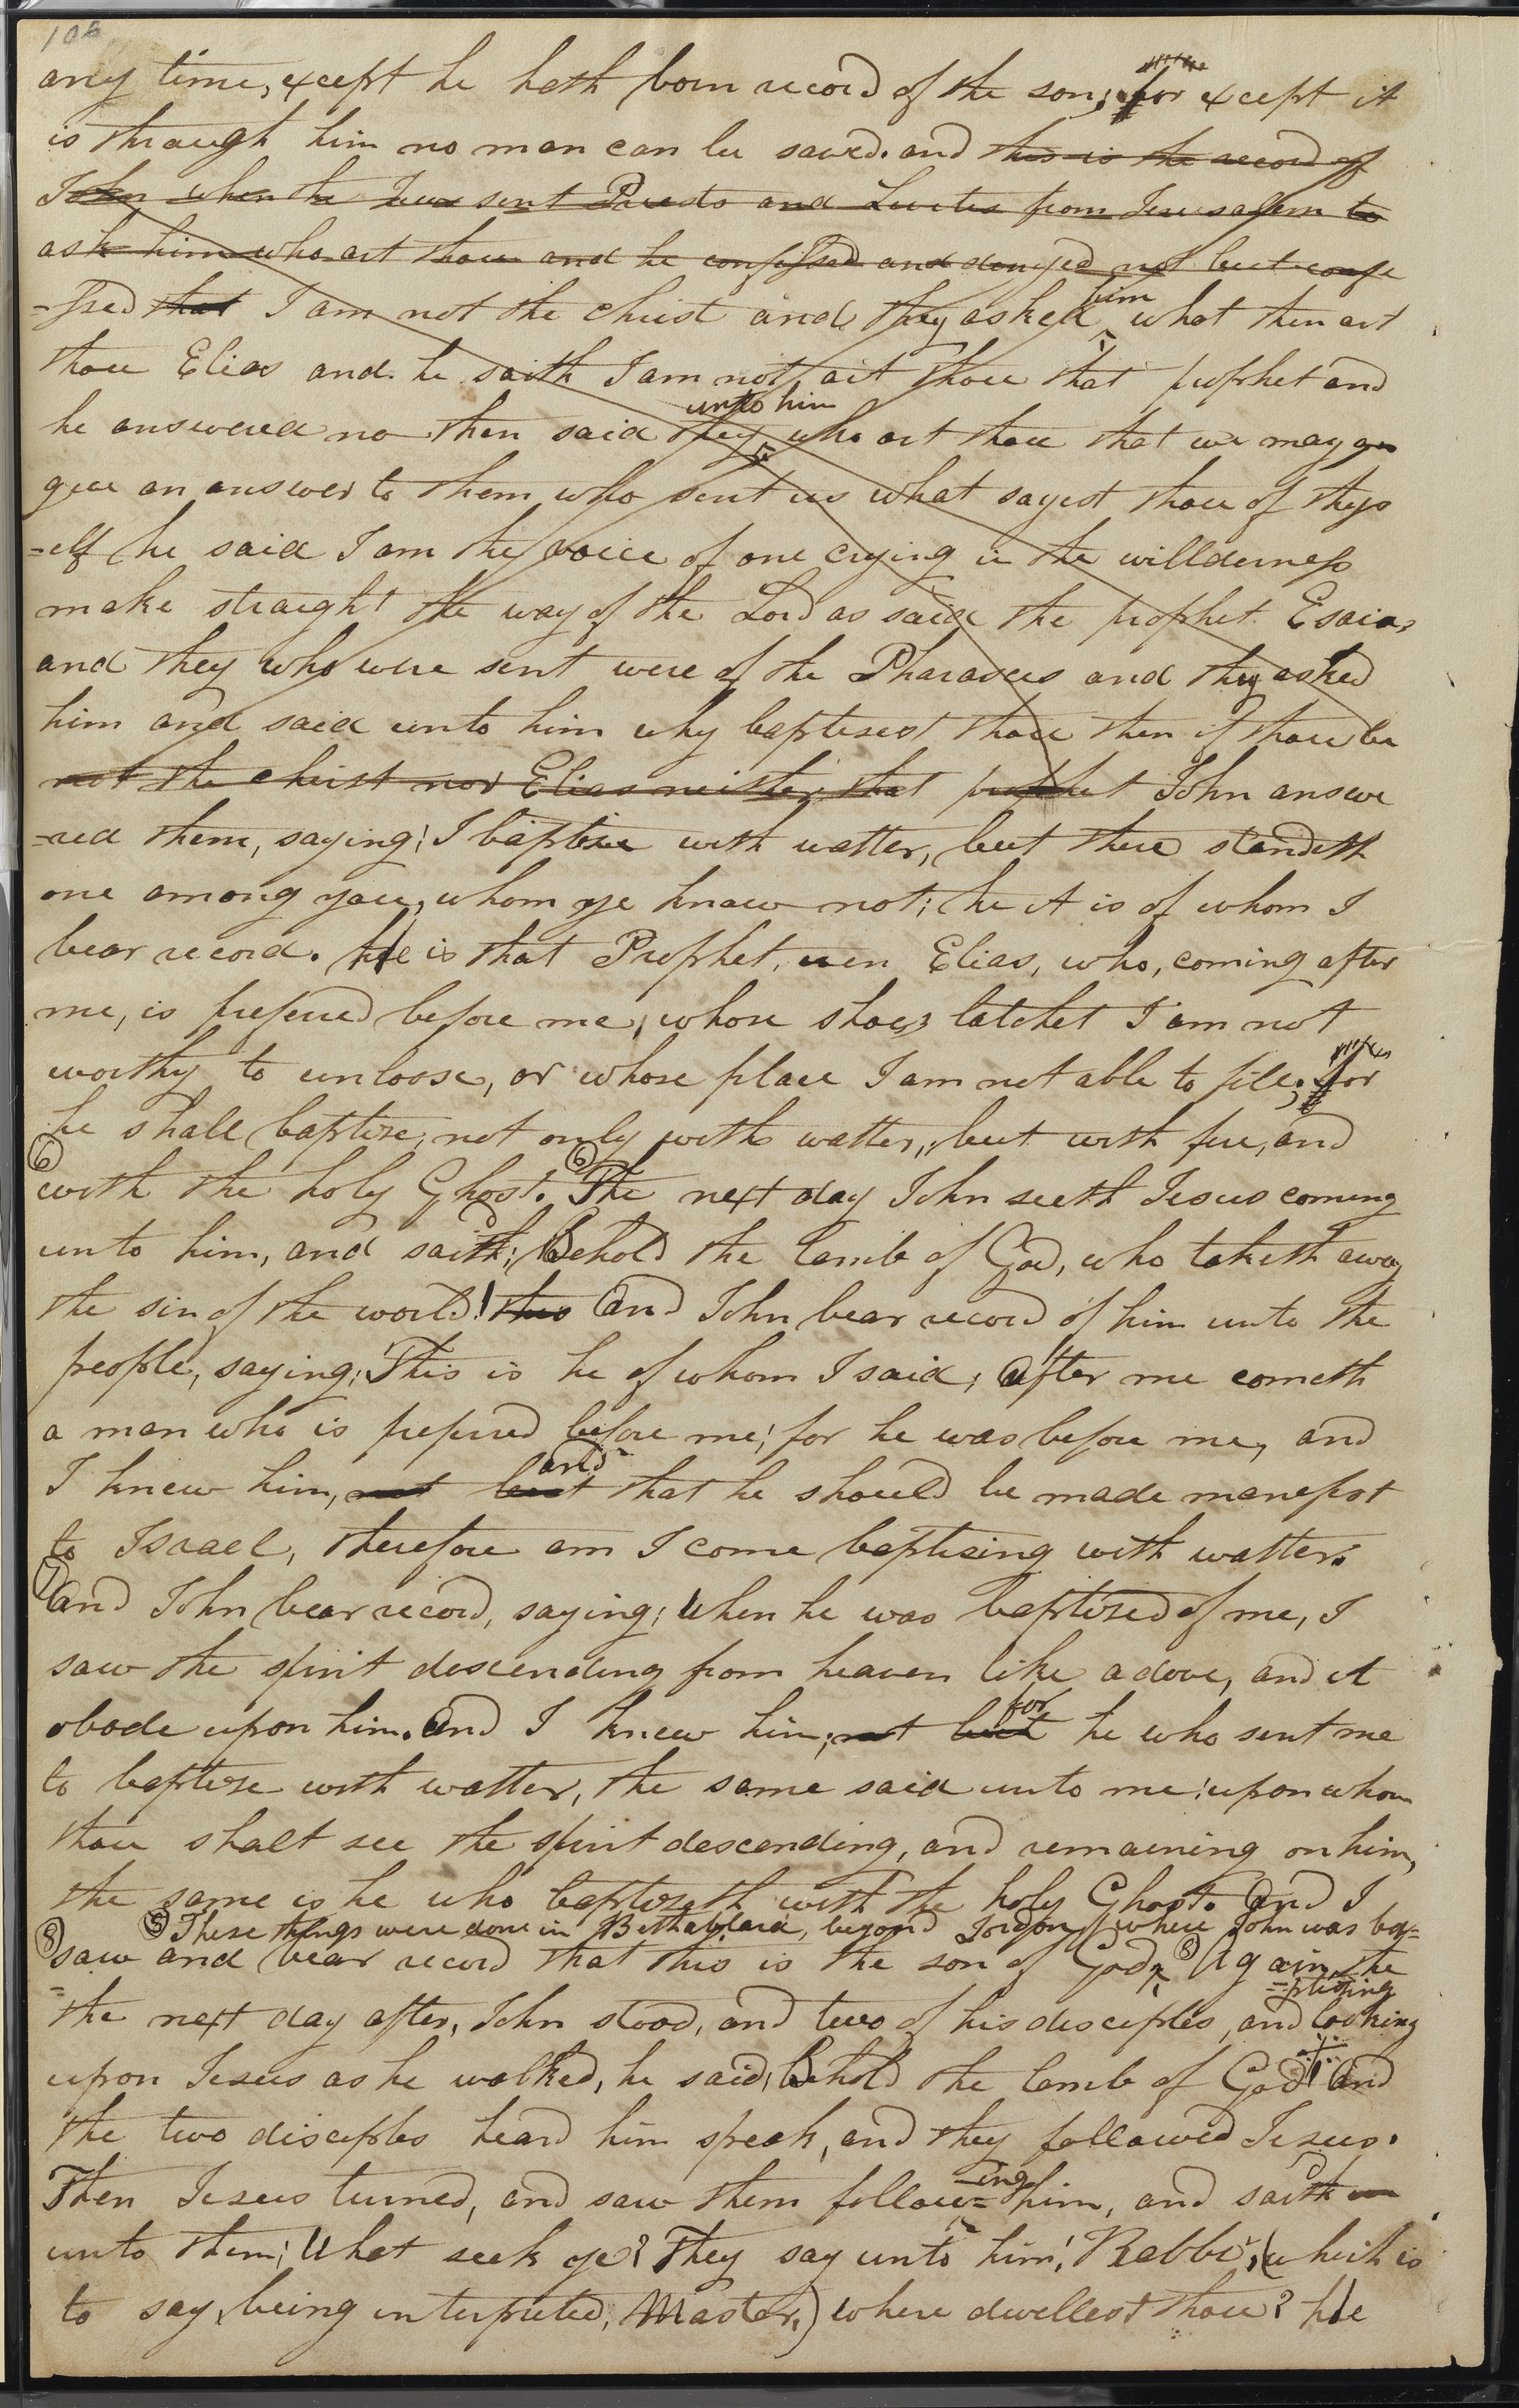 106
any time, except he hath born record of the son; for except it
is through him no man can be saved. and this is the record of
John when the Jews sent Priests and Levites from Jerusalem to
ask him who art thou and he confessed and denyed not but confe
=ssed that I am not the christ and they asked him what then art
thou Elias and he saith I am not, art thou that prophet and
he answered no then said they unto him who art thou that we may gu
give an answer to them who sent us what sayest thou of thys
=elf he said I am the voice of one crying in the willderness
make straight the way of the Lord as said the prophet Esaias
and they who were sent were of the Pharasees and they asked
him and said unto him why baptisest thou then if thou be
not the christ nor Elias neither that prophet John answe
=red them, saying; I baptise with watter, but there standeth
one among you, whom ye know not; he it is of whom I
bear record. He is that Prophet, even Elias, who, coming after
me, is prefered before me, whose shoes latchet I am not
worthy to unloose, or whose place I am not able to fill; for
he shall baptize, not only with watter, but with fire, and
6 with the holy Ghost. 6 The next day John seeth Jesus coming
unto him, and saith; Behold the lamb of God, who taketh away
the sin of the world! this And John bear record of him unto the
people, saying; This is he of whom I said; After me cometh
a man who is prefered before me; for he was before me, and
I knew him, not but and that he should be made manefest
to Israel, therefore am I come baptising with watter.
7 And John bear record, saying; When he was baptized of me, I
saw the spirit descending from heaven like a dove, and it
abode upon him. And I knew him; not but for he who sent me
to baptize with watter, the same said unto me; upon whom
thou shalt see the spirit descending, and remaining on him,
the same is he who baptizeth with the holy Ghost. And I
5 These things were done in Bethabara, beyond Jordon, where John was bap=
8 saw and bear record that this is the son of God. 8 Again, the
=ptising
the next day after, John stood, and two of his disciples, and looking
upon Jesus as he walked, he said; Behold the lamb of God! And
the two disciples heard him speak, and they followed Jesus.
Then Jesus turned, and saw them follow=ing him, and saith un
unto them; What seek ye? They say unto him; Rabbi, (which is
to say, being interpreted, Master,) where dwellest thou? He